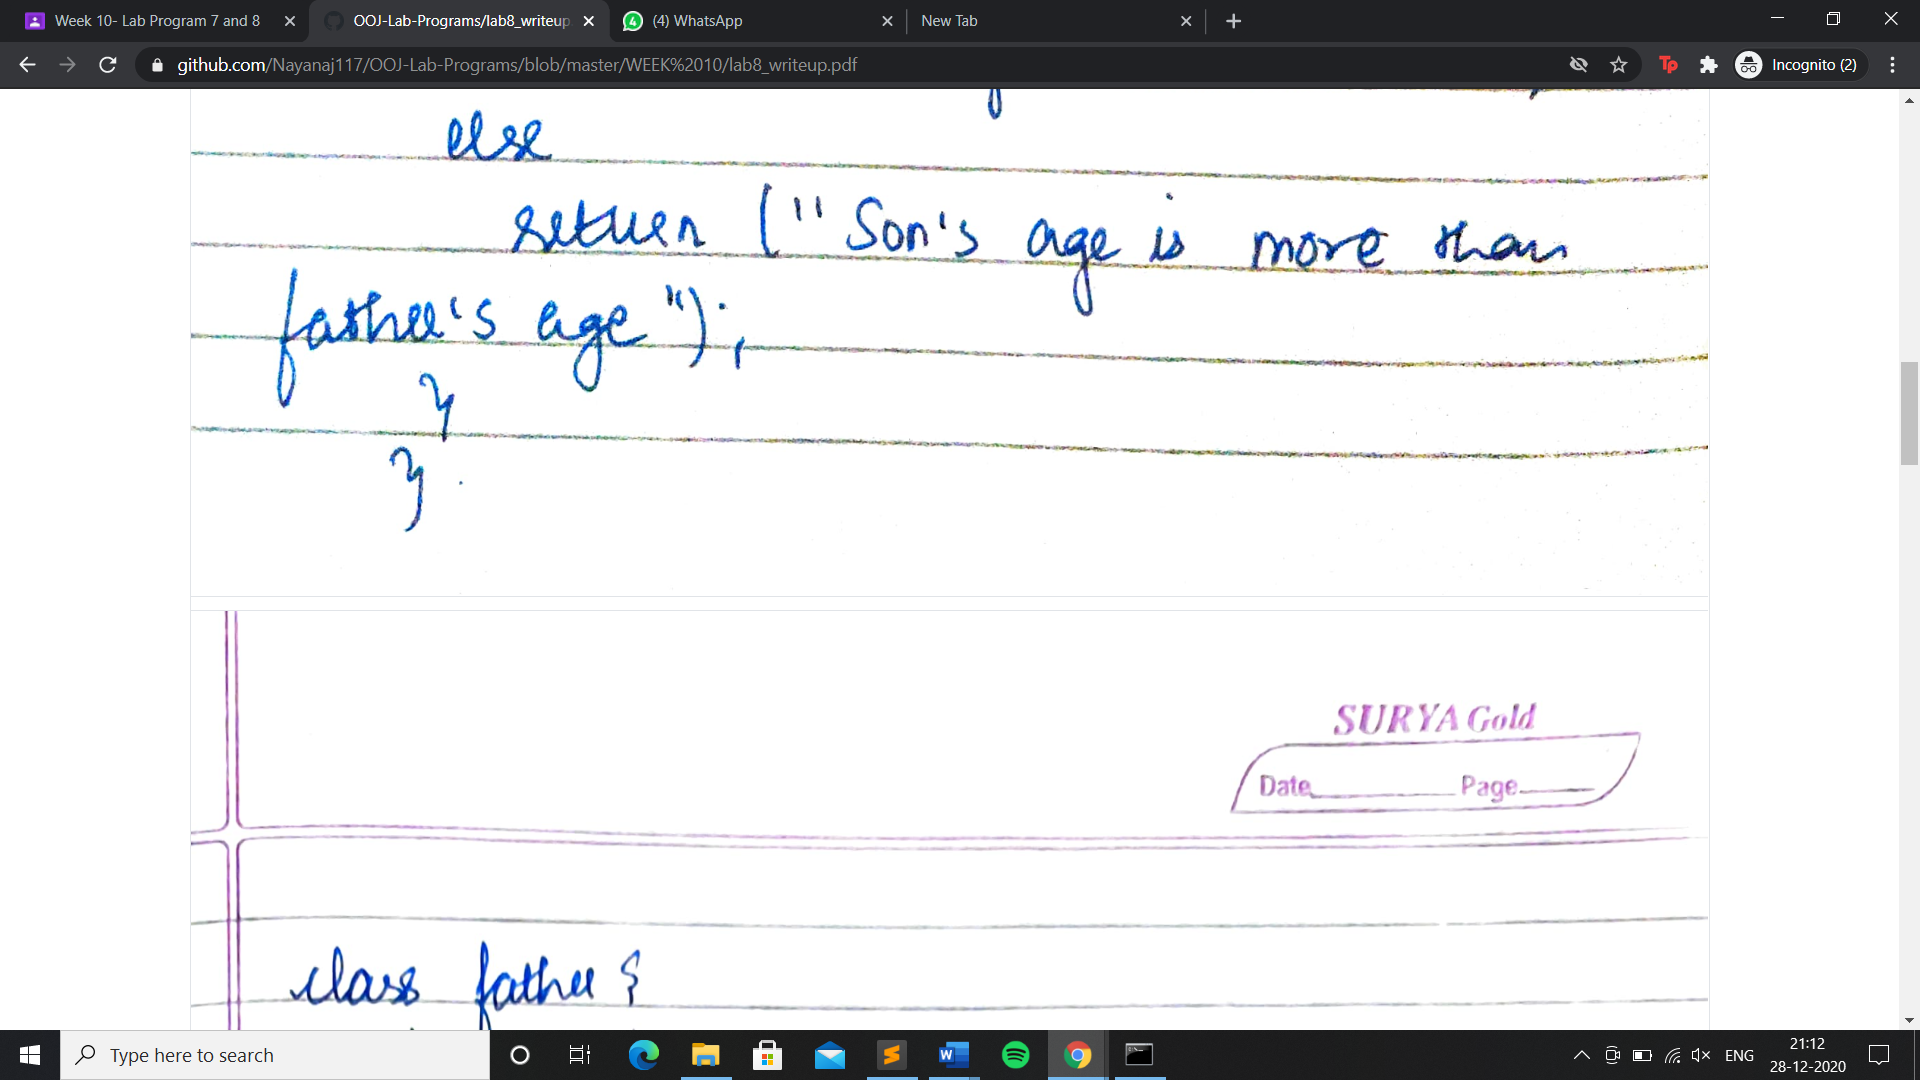 Week 10- Lab Program 7 and 8
OOJ-Lab-Programs/lab8_writeup
(4) WhatsApp
New Tab
github.com/Nayanaj117/OOJ-Lab-Programs/blob/master/WEEK%2010/lab8_writeup.pdf
Incognito (2)
else
return ("Son's age is more than
father's age");
}
}
SURYA Gold
Date Page
class father {
Type here to search
ENG
21:12
28-12-2020